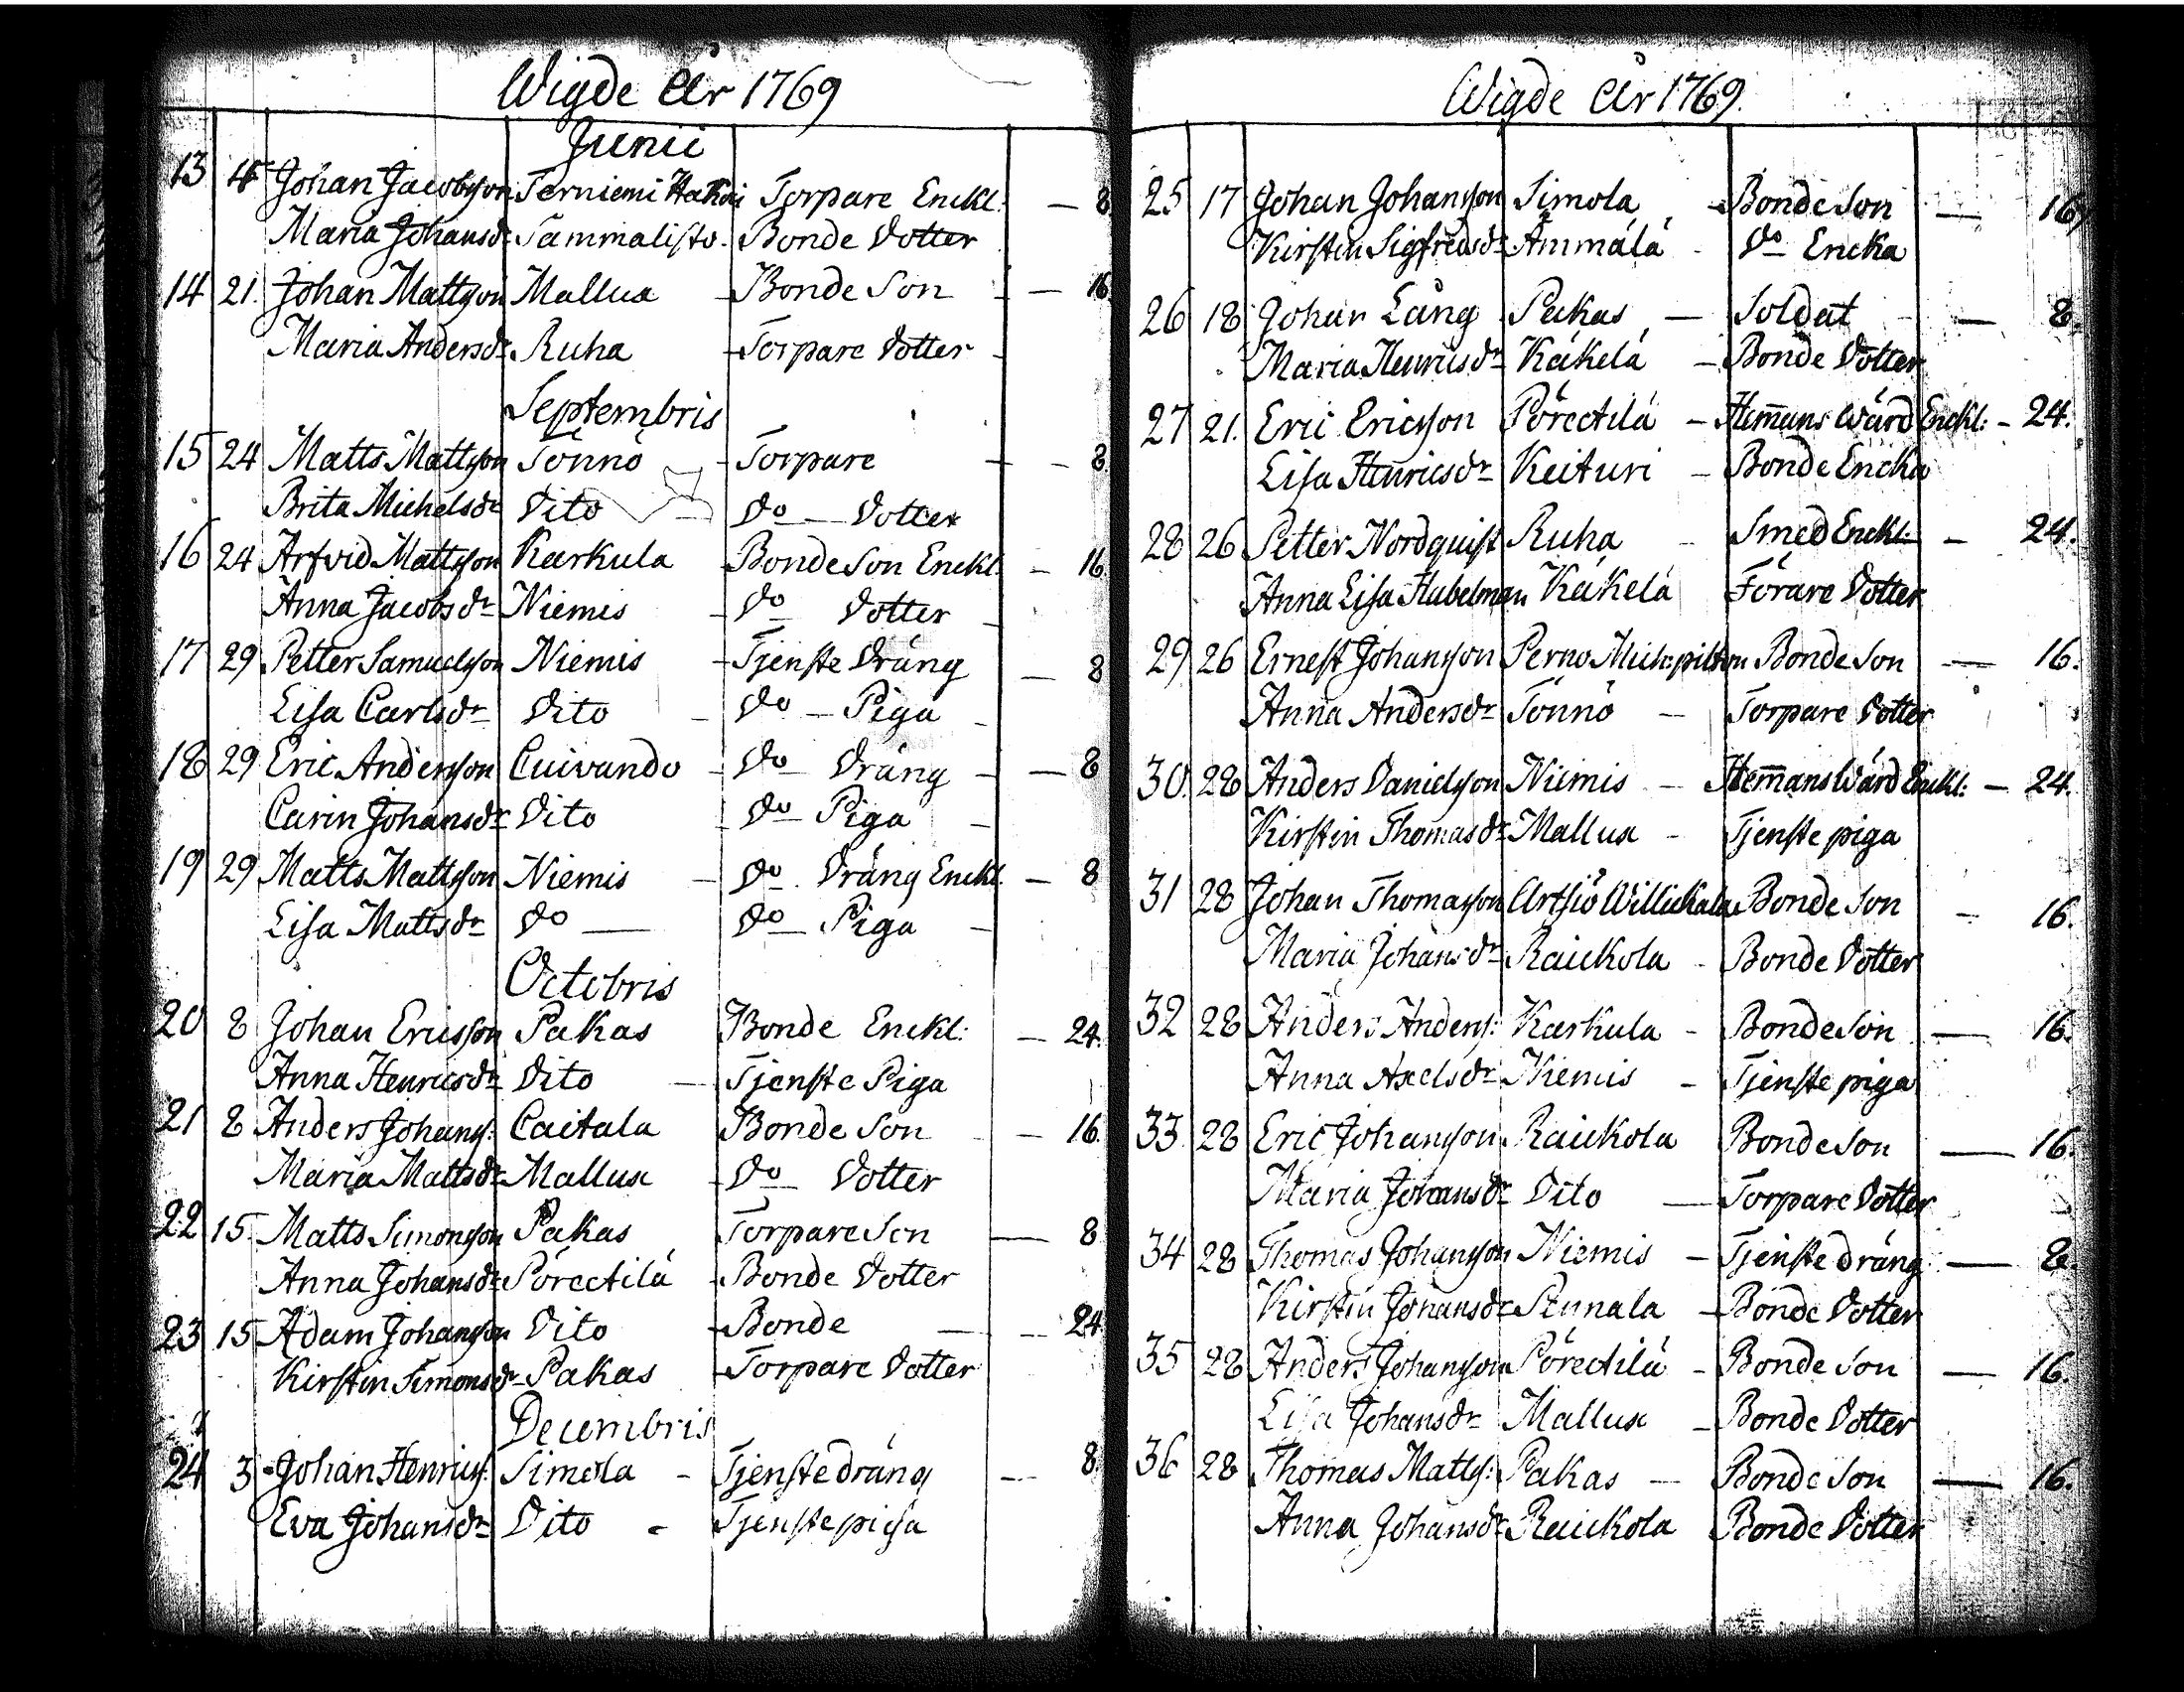 Wigde År 1769
Junii
13 Johan Jacobsson Terniemi Torpare Enckl: — 8
Maria Johansdr Sammalisto Bonde Dotter
14 21. Johan Mattsson Mallua Bonde Son — 16
Maria Andersdr Ruha Torpare Dotter
Septembris
15 24 Matts Mattsson Tönnö Torpare — 8
Brita Michelsdr Dito Do Dotter
16 24 Arfvid Mattsson Karkula Bonde Son Enckl. — 16
Anna Jacobsdr Niemis Do Dotter
17 29 Petter Samuelsson Niemis Tjenste Dräng — 8
Lisa Carlsdr Dito Do Piga
18 29 Eric Andersson Cuivando Do Dräng — 8
Carin Johansdr Dito Do Piga
19 29 Matts Mattsson Niemis Do Dräng Enckl. — 8
Lisa Mattsdr Do Do Piga
Octobris
20 8 Johan Ericsson Pakas Bonde Enckl: — 24.
Anna Henricsdr Dito Tjenste Piga
21 8 Anders Johanss: Caitala Bonde Son — 16
Maria Mattsdr Mallua Do Dotter
22 15 Matts Simonsson Pakas Torpare Son — 8
Anna Johansdr Pöretilä Bonde Dotter
23 15 Adam Johansson Dito Bonde — 24
Kirstin Simonsdr Pakas Torpare Dotter
Decembris
24 3 Johan Henrics: Simola Tjenste dräng — 8
Eva Johansdr Dito Tjenste piga
Wigde År 1769.
25 17 Johan Johansson Simola Bonde Son — 16
Kirstin Sigfredsdr Ammälä Do Encka
26 18 Johan Lång Pakas Soldat — 8.
Maria Henricsdr Käkelä Bonde Dotter
27 21. Eric Ericsson Pöretilä Hemans Wärd Enckl: — 24.
Lisa Henricsdr Keituri Bonde Encka
28 26 Petter Nordquist Ruha Smed Enckl: — 24.
Anna Lisa Käkelä Förare Dotter
29 26 Ernest Johansson Perno Bonde Son — 16.
Anna Andersdr Tönnö Torpare Dotter
30. 28 Anders Danielsson Niemis Hemans Wärd Enckl: — 24.
Kirstin Thomasdr Mallua Tjenste piga
31 28 Johan Thomasson Artsiö Willickala Bonde Son — 16.
Maria Johansdr Raickola Bonde Dotter
32 28 Anders Anders: Karkula Bonde Son — 16.
Anna Axelsdr Niemis Tjenste piga
33 28 Eric Johansson Raickola Bonde Son — 16.
Maria Johansdr Dito Torpare Dotter
34 28 Thomas Johansson Niemis Tjenste dräng — 8.
Kirstin Johansdr Sunnala Bonde Dotter
35 28 Anders Johansson Pöretilä Bonde Son — 16.
Lisa Johansdr Mallua Bonde Dotter
36 28 Thomas Matts: Pakas Bonde Son — 16.
Anna Johansdr Raickola Bonde Dotter